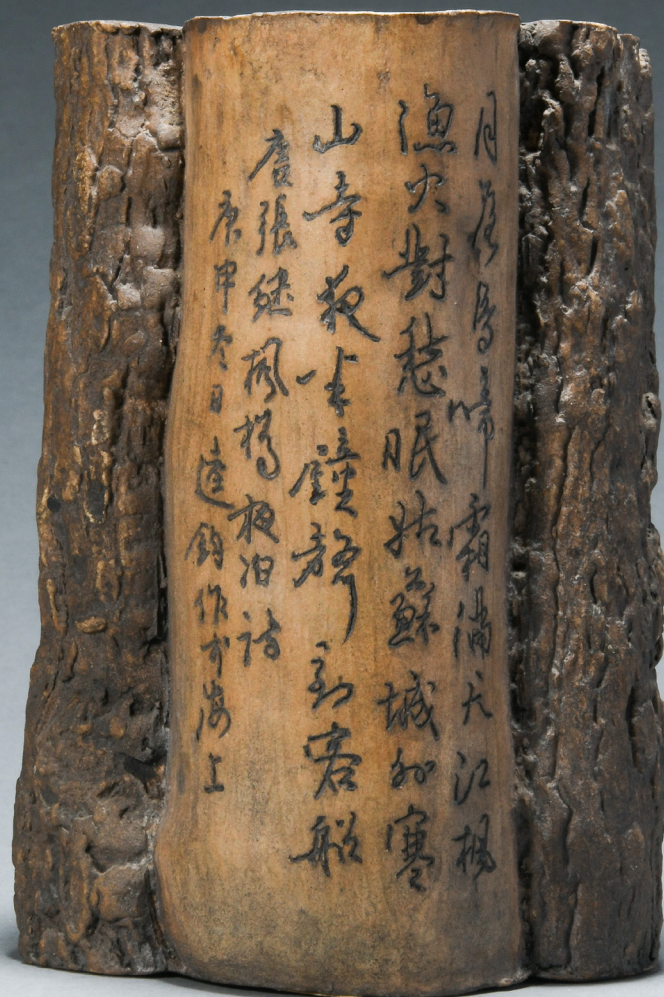 月落烏啼霜滿天江楓
漁火對愁眠姑蘇城外寒
山寺夜半鐘聲到客船
唐張繼楓橋夜泊詩
庚申冬日達鈞作於海上